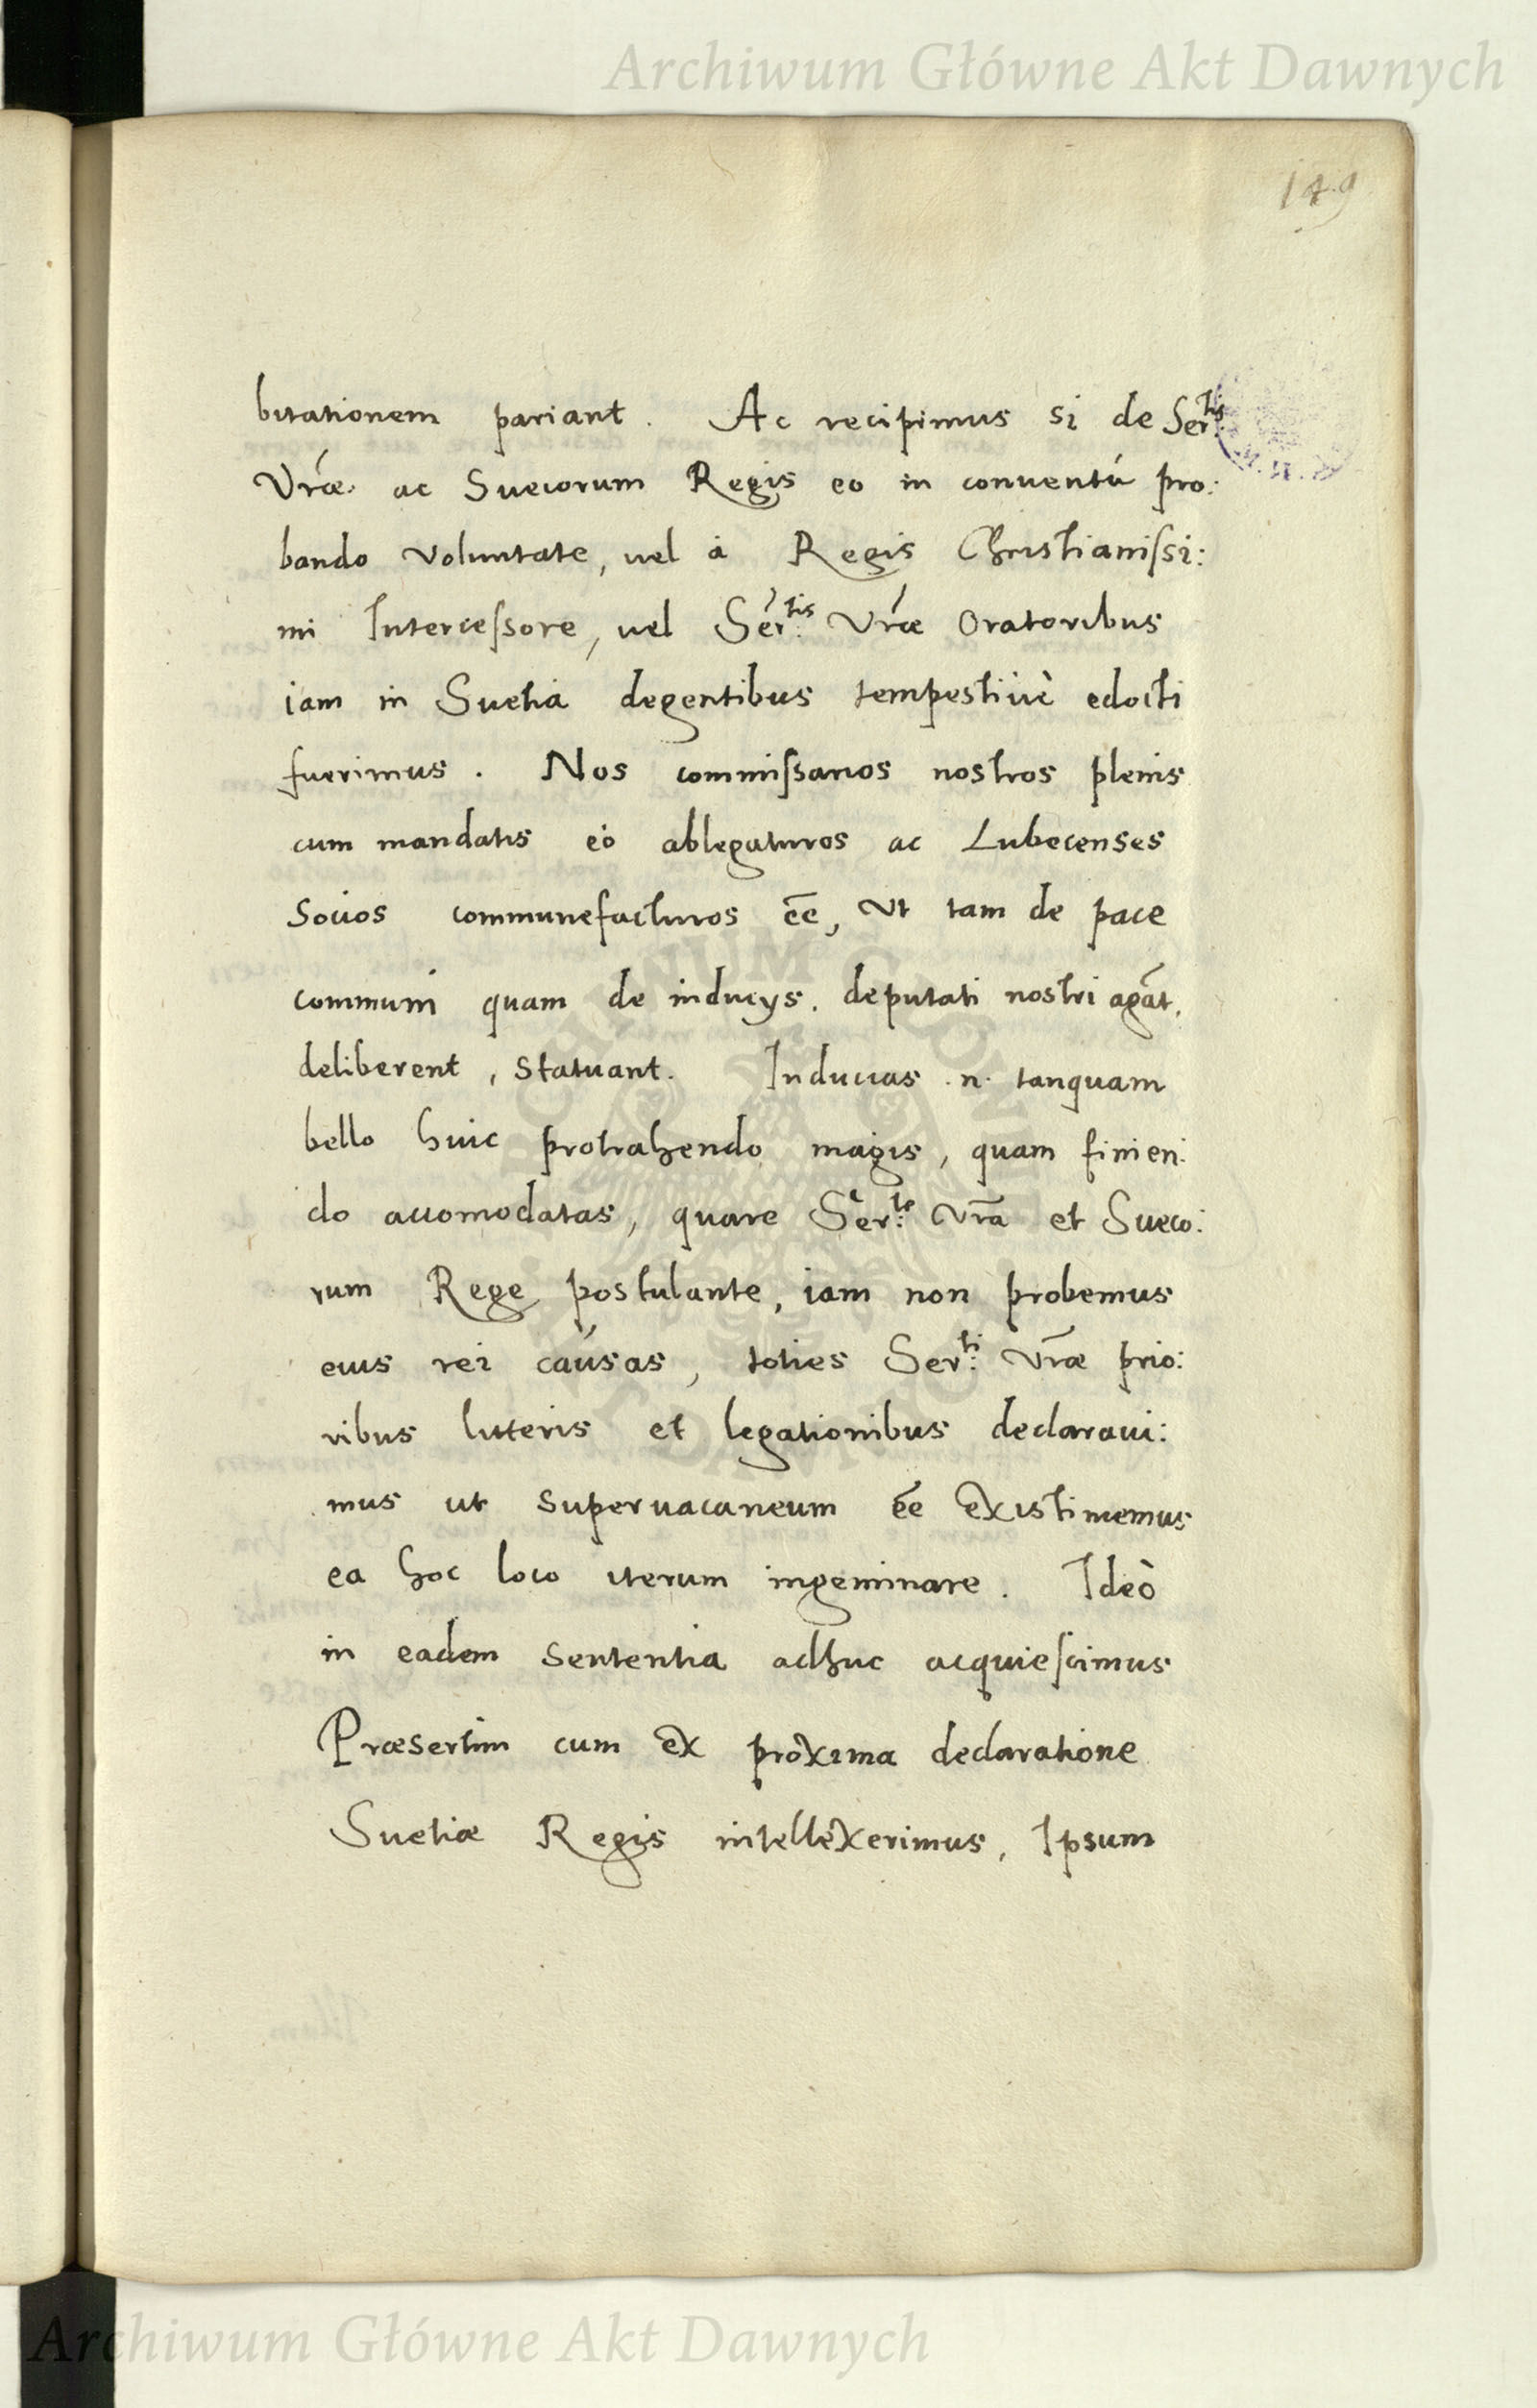 Archiwum Główne Akt Dawnych
149
bitationem pariant. Ac recipimus si de Ser:tis
Vrae. ac Suecorum Regis eo in conuentú pro:
bando voluntate, uel à Regis Christianiſsi:
mi Interceſsore, uel Ser:tis Vrae Oratoribus
iam in Suetia degentibus tempestiuè edocti
fuerimus. Nos commiſsarios nostros plenis
cum mandatis eò ablegaturos ac Lubecenses
Socios communefacturos ēe, Vt tam de pace
communi quam de inducijs. deputati nostri agāt,
deliberent, Statuant. Inducias .n. tanquam
bello huic protrahendo magis, quam finien:
do accomodatas, quare Ser:te Vra et Sueco:
rum Rege postulante, iam non probemus
eius rei causas, toties Ser:ti Vrae prio:
ribus litteris et legationibus declaraui:
mus ut superuacaneum ēe existimemus
ea hoc loco iterum ingeminare. Ideò
in eadem sententia adhuc acquieſcimus
Praesertim cum ex proxima declaratione
Suetiae Regis intellexerimus, Ipsum
Archiwum Główne Akt Dawnych